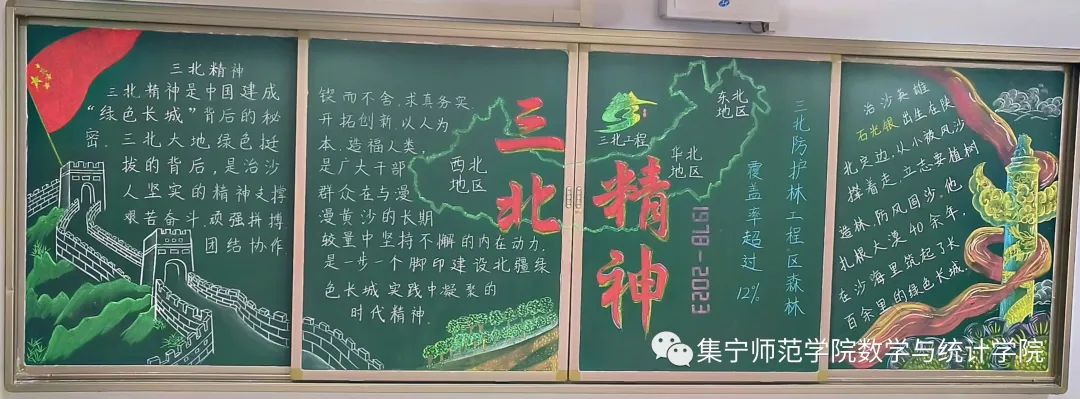 三北精神
三北精神是中国建成
“绿色长城”背后的秘
密.三北大地绿色挺
拔的背后,是治沙
人坚实的精神支撑
艰苦奋斗.顽强拼搏
团结协作
锲而不舍,求真务实.
开拓创新.以人为
本.造福人类,
是广大干部
群众在与漫
漫黄沙的长期
较量中坚持不懈的内在动力.
是一步一个脚印建设北疆绿
色长城实践中凝聚的
时代精神.
西北
地区
三北
精神
三北工程
东北
地区
华北
地区
1978-2023
三北防护林工程区森林
覆盖率超过12%
治沙英雄
石光银,出生在陕
北定边,从小被风沙
撵着走,立志要植树
造林,防风固沙.他
扎根大漠40余年,
在沙海里筑起了长
百余里的绿色长城.
集宁师范学院数学与统计学院